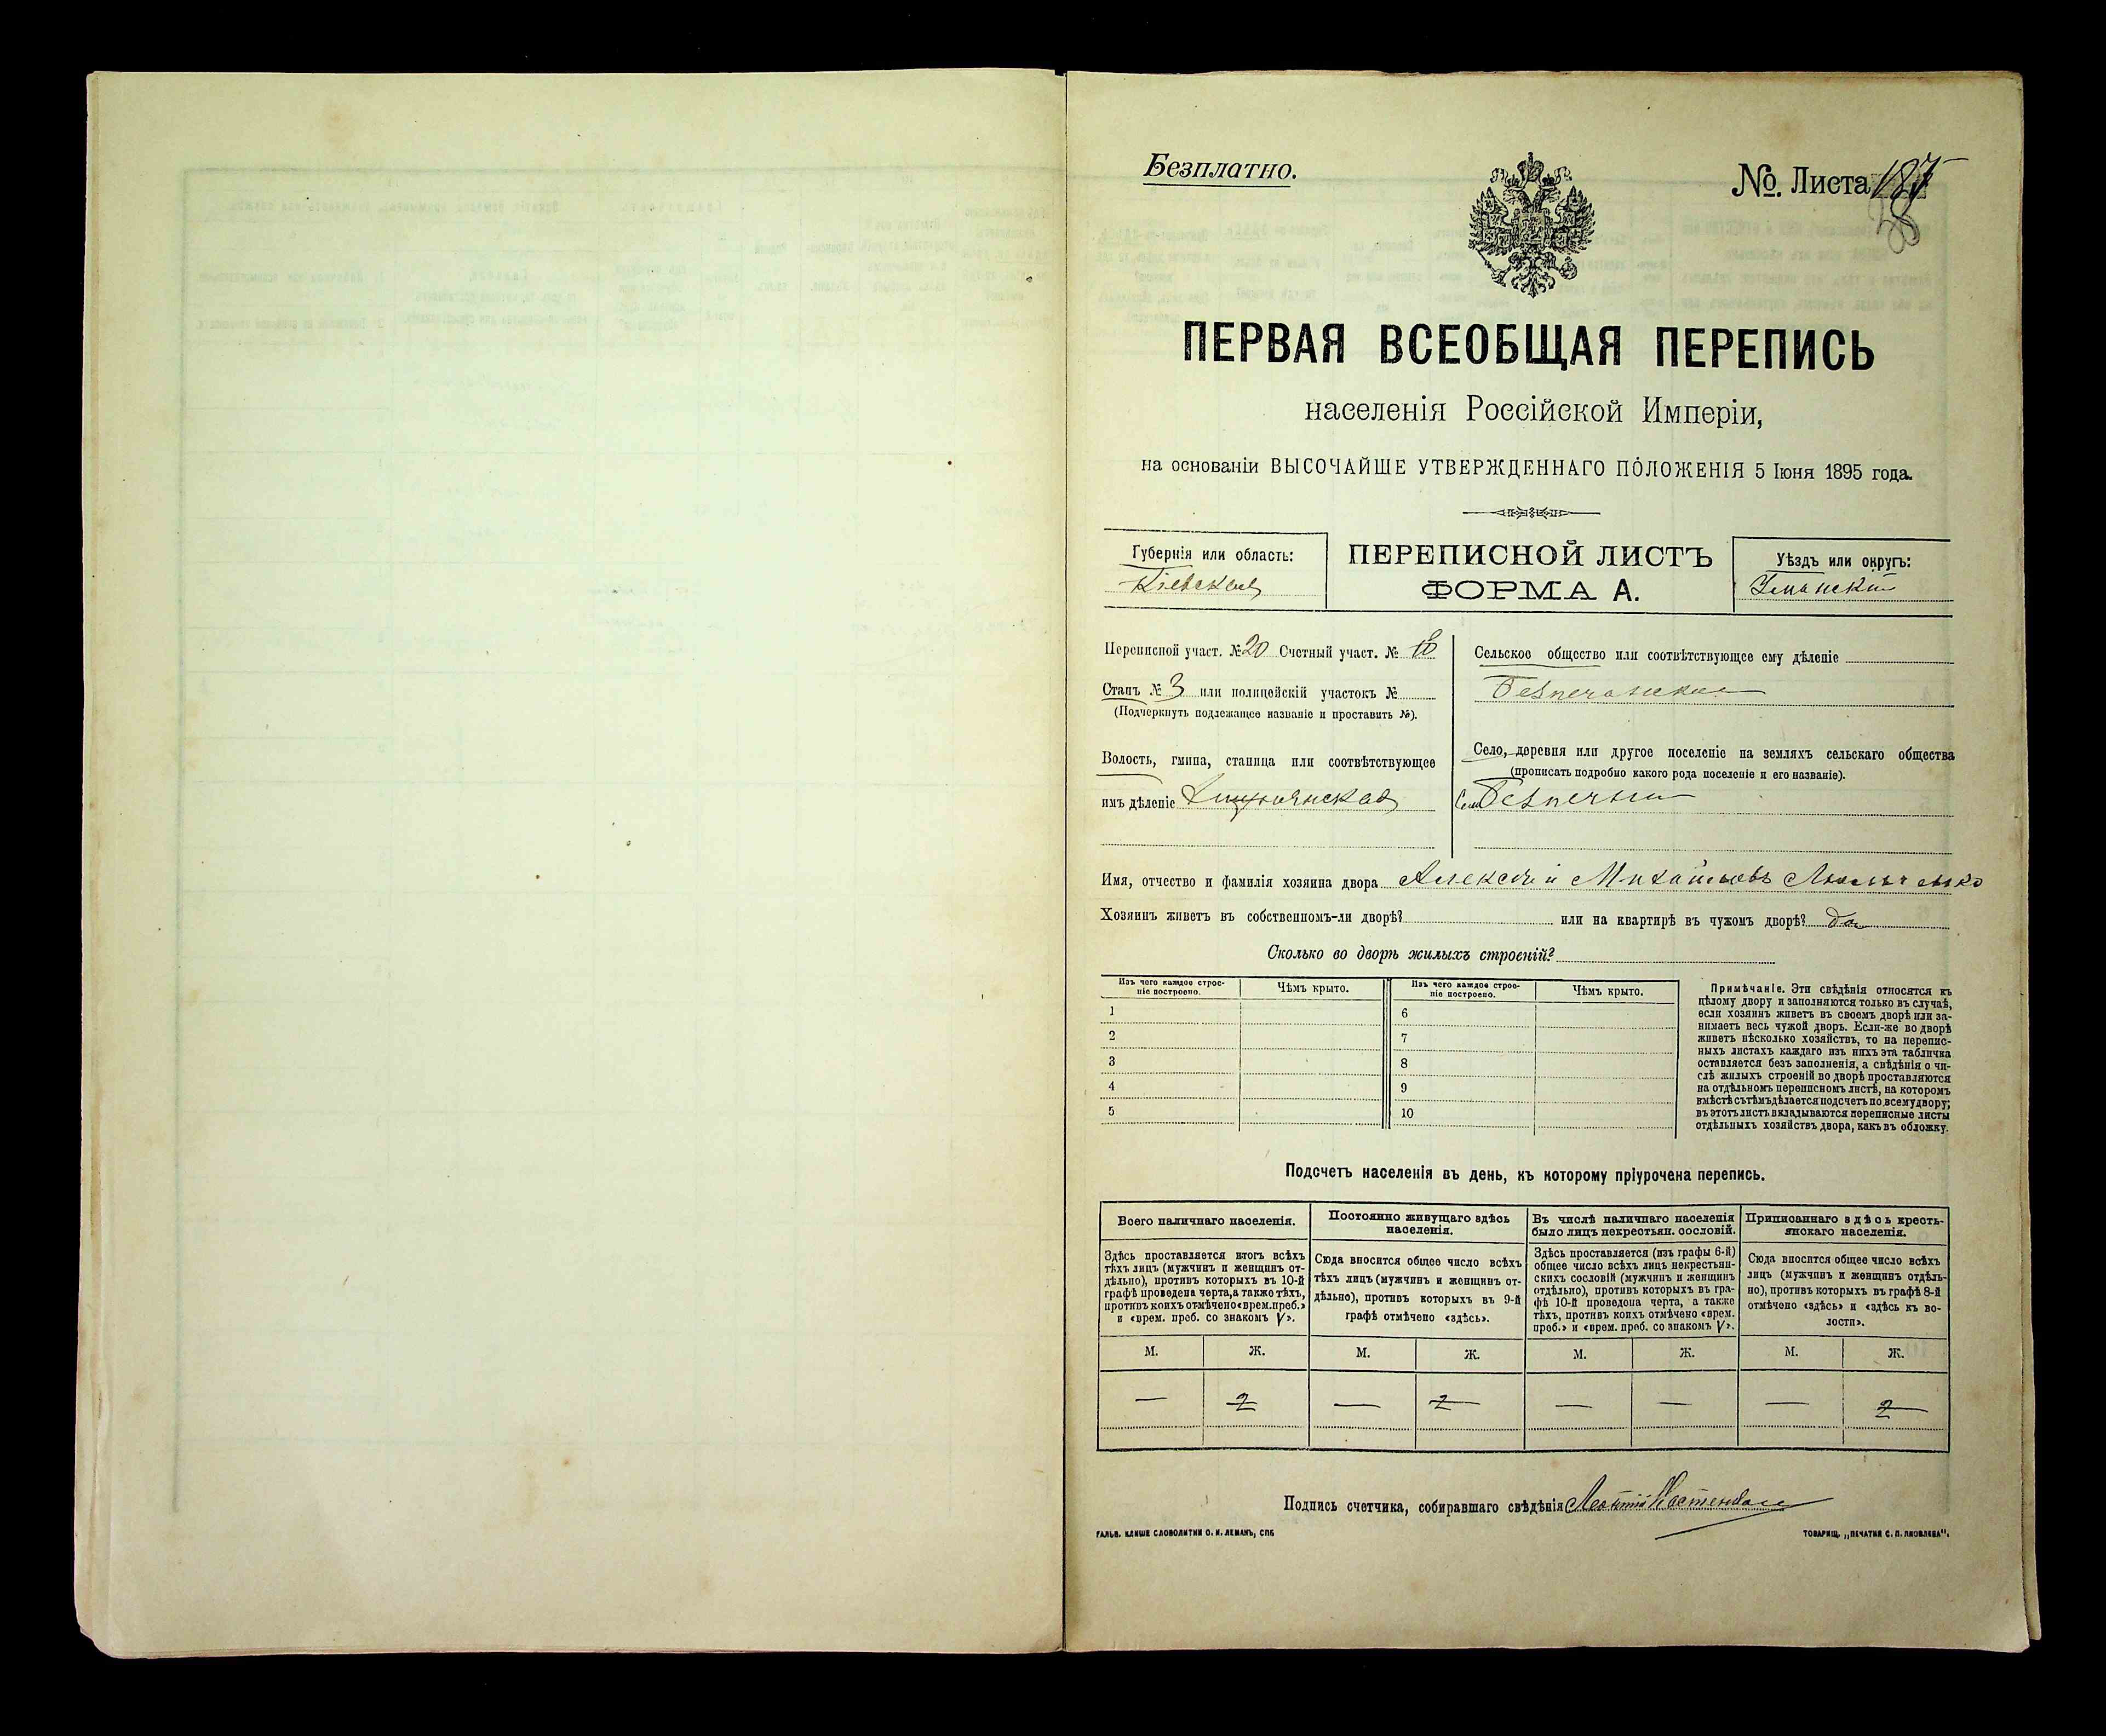 Безплатно.
№. Листа 187
38
ПЕРВАЯ ВСЕОБЩАЯ ПЕРЕПИСЬ
населенія Россійской Имперіи,
на основаніи ВЫСОЧАЙШЕ УТВЕРЖДЕННАГО ПОЛОЖЕНІЯ 5 Іюня 1895 года.
Губернія или область:
Кіевская
ПЕРЕПИСНОЙ ЛИСТЪ
ФОРМА А.
Уѣздъ или округъ:
Уманскій
Переписной участ. № 20 Счетный участ. №
Станъ № 3 или полицейскій участокъ №
(Подчеркнуть подлежащее названіе и проставить №).
Волость, гмина, станица или соотвѣтствующее
имъ дѣленіе
Сельское общество или соотвѣтствующее ему дѣленіе
Село, деревня или другое поселеніе на земляхъ сельскаго общества
(прописать подробно какого рода поселеніе и его названіе).
Село
Имя, отчество и фамилія хозяина двора Алексѣй Михайловъ
Хозяинъ живетъ въ собственномъ-ли дворѣ? или на квартирѣ въ чужомъ дворѣ? да
Сколько во дворѣ жилыхъ строеній?
Изъ чего каждое строе-
ніе построено.
Чѣмъ крыто.
Изъ чего каждое строе-
ніе построено.
Чѣмъ крыто.
1
2
3
4
5
6
7
8
9
10
Примѣчаніе. Эти свѣдѣнія относятся къ
цѣлому двору и заполняются только въ случаѣ,
если хозяинъ живетъ въ своемъ дворѣ или за-
нимаетъ весь чужой дворъ. Если-же во дворѣ
живетъ нѣсколько хозяйствъ, то на перепис-
ныхъ листахъ каждаго изъ нихъ эта табличка
оставляется безъ заполненія, а свѣдѣнія о чи-
слѣ жилыхъ строеній во дворѣ проставляются
на отдѣльномъ переписномъ листѣ, на которомъ
вмѣстѣ съ тѣмъ дѣлается подсчетъ по всему двору;
въ этотъ листъ вкладываются переписные листы
отдѣльныхъ хозяйствъ двора, какъ въ обложку.
Подсчетъ населенія въ день, къ которому пріурочена перепись.
Всего наличнаго населенія.
Здѣсь проставляется итогъ всѣхъ
тѣхъ лицъ (мужчинъ и женщинъ от-
дѣльно), противъ которыхъ въ 10-й
графѣ проведена черта, а также тѣхъ,
противъ коихъ отмѣчено «врем. преб.»
и «врем. преб. со знакомъ V».
Постоянно живущаго здѣсь
населенія.
Сюда вносится общее число всѣхъ
тѣхъ лицъ (мужчинъ и женщинъ от-
дѣльно), противъ которыхъ въ 9-й
графѣ отмѣчено «здѣсь».
Въ числѣ наличнаго населенія
было лицъ некрестьян. сословій.
Здѣсь проставляется (изъ графы 6-й)
общее число всѣхъ лицъ некрестьян-
скихъ сословій (мужчинъ и женщинъ
отдѣльно), противъ которыхъ въ гра-
фѣ 10-й проведена черта, а также
тѣхъ, противъ коихъ отмѣчено «врем.
преб.» и «врем. преб. со знакомъ V».
Приписаннаго здѣсь кресть-
янскаго населенія.
Сюда вносится общее число всѣхъ
лицъ (мужчинъ и женщинъ отдѣль-
но), противъ которыхъ въ графѣ 8-й
отмѣчено «здѣсь» и «здѣсь къ во-
лости».
М. Ж. М. Ж. М. Ж. М. Ж.
— 2 — 2 — — — 2
Подпись счетчика, собиравшаго свѣдѣнія Леонтій
ГАЛЬВ. КЛИШЕ СЛОВОЛИТНИ О. И. ЛЕМАНЪ, СПБ
ТОВАРИЩ. „ПЕЧАТНЯ С. П. ЯКОВЛЕВА".